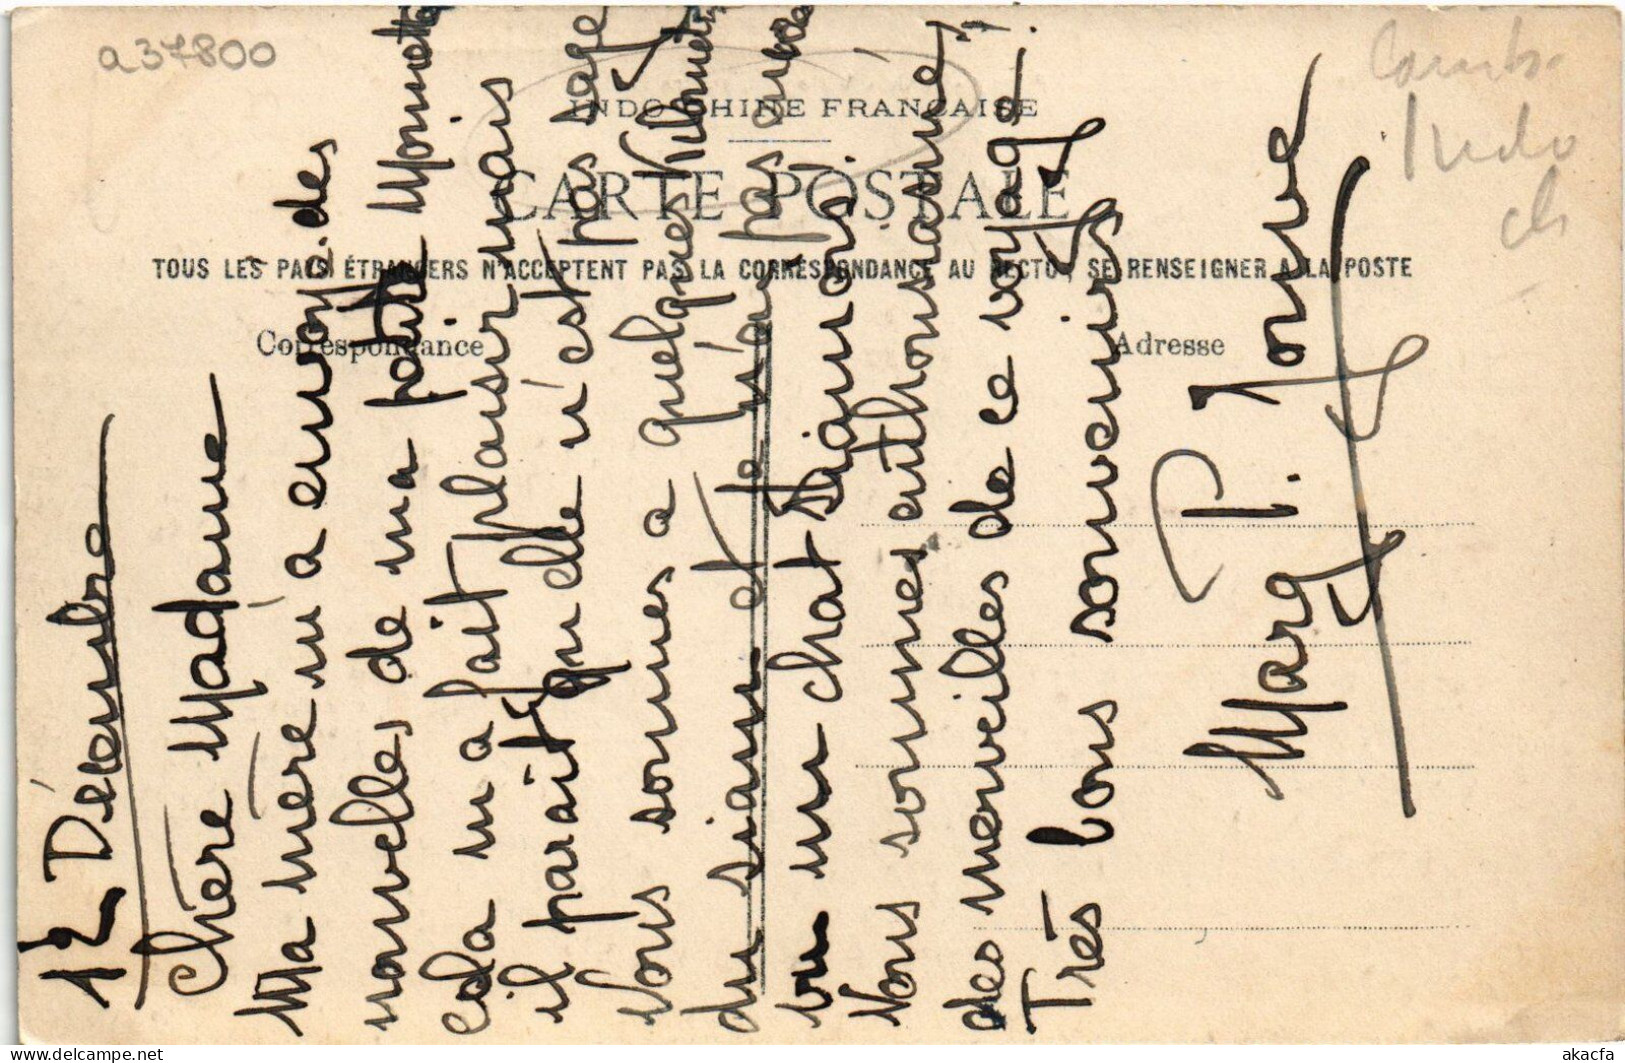 a37800
Camb.
Indo
ch
INDO-CHINE FRANÇAISE
CARTE POSTALE
TOUS LES PAYS ÉTRANGERS N'ACCEPTENT PAS LA CORRESPONDANCE AU RECTO, SE RENSEIGNER A LA POSTE
Correspondance
Adresse
12 Décembre
Chère Madame
Ma mère m'a envoyé des
nouvelles de ma petite
cela m'a fait plaisir mais
il parait qu'elle n'est pas sage
Nous sommes a quelques kilomètres
du siam et je n'ai pas encore
vu un chat siamois.
Nous sommes enthousiasmés
des merveilles de ce voyage.
Très bons souvenirs
Marg P. Jouve
delcampe.net
akacfa